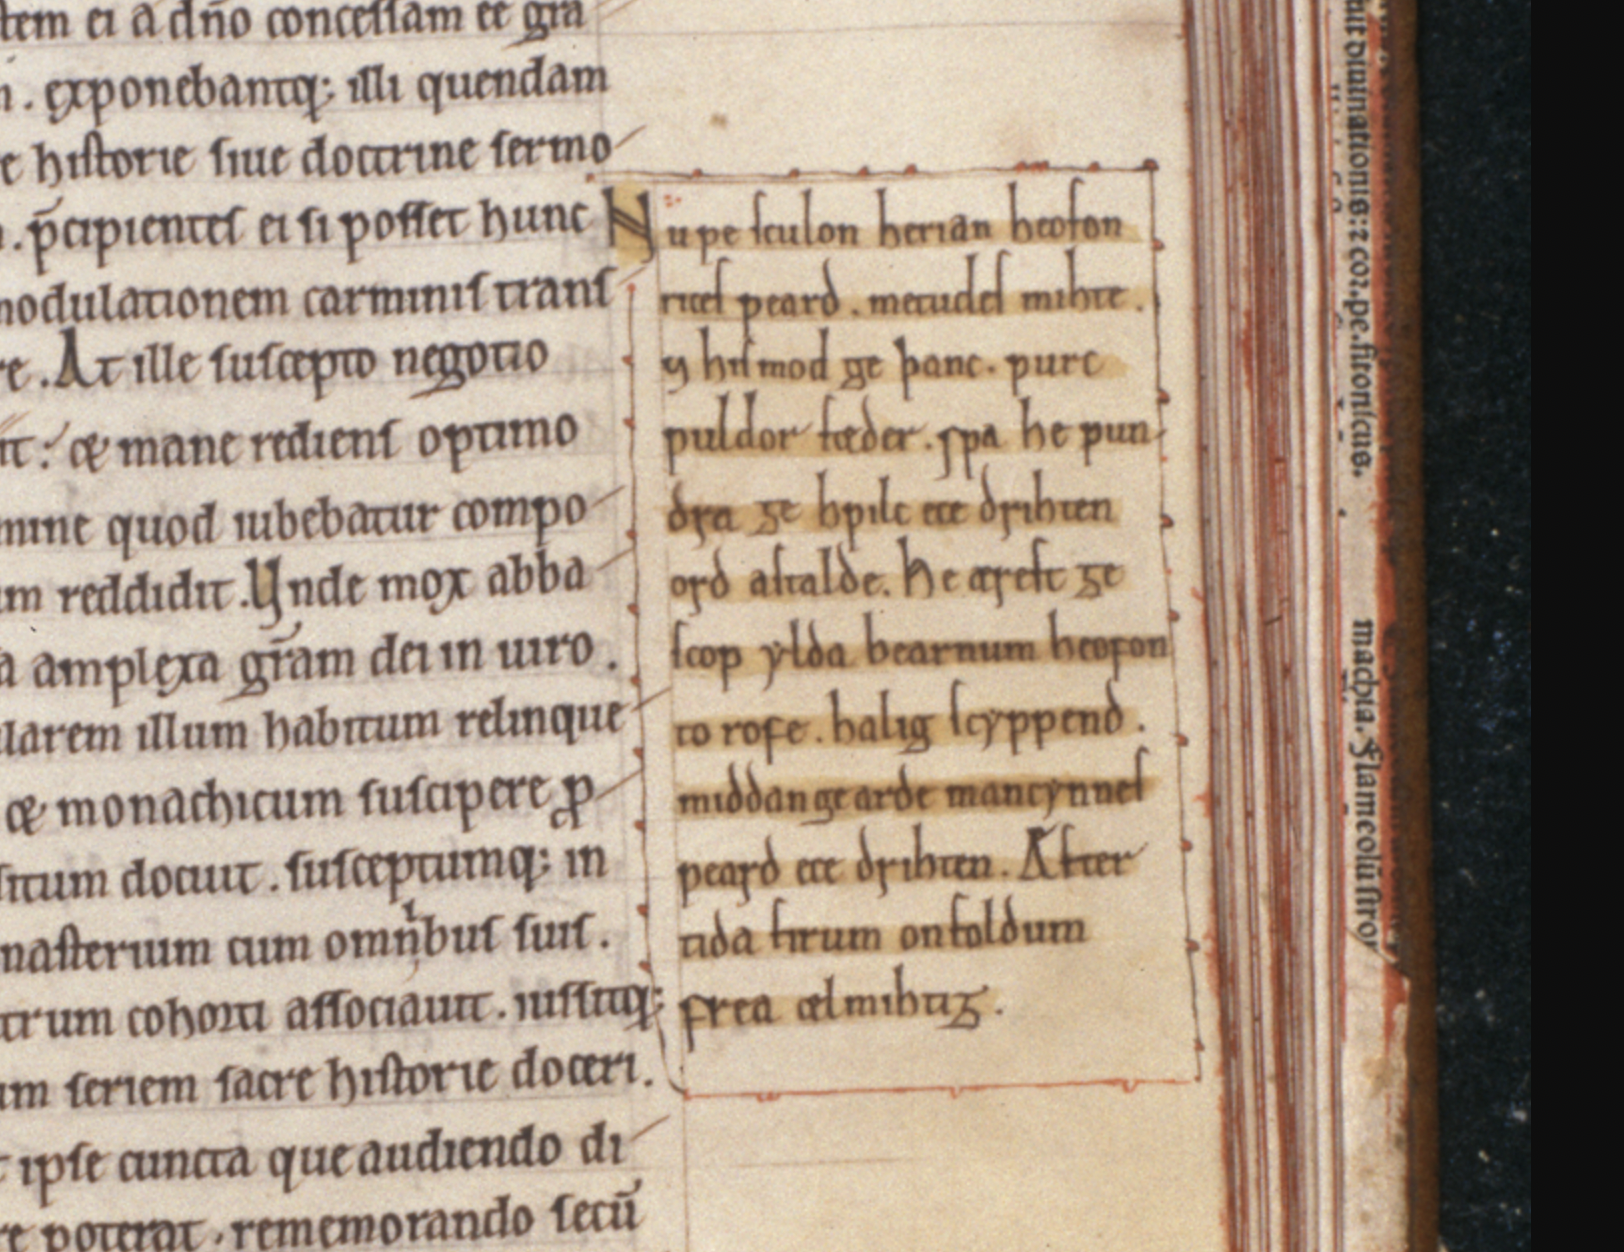 tem ei a dño conceſſam eē gra
. exponebantq; illi quendam
hiſtorie ſiue doctrine ſermo
. p̄cipienteſ ei ſi poſſet hunc
modulationem carminiſ tranſ
. At ille ſuſcepto negotio
⁊ mane redienſ optimo
quod iubebatur compo
reddidit. Unde mox abba
amplexa gr̄am dei in uiro.
larem illum habitum relinque
⁊ monachicum ſuſcipere ꝓ
ſitum docuit. ſuſceptumq; in
naſterium cum omnibuſ ſuiſ.
trum cohorti aſſociauit. iuſſitq;
um ſeriem ſacre hiſtorie doceri.
ipſe cuncta que audiendo di
poterat. rememorando ſecū
Nu ƿe ſculon herian heofon
riceſ ƿeard. metudeſ mihte.
⁊ hiſ mod ge þanc. ƿurc
ƿuldor fæder. sƿa he ƿun
dra ge hƿilc ece drihten
ord aſtalde. He æreſt ge
ſcop ylda bearnum heofon
to rofe. halig ſcyppend.
middangearde mancynneſ
ƿeard ece drihten. Æfter
tida firum on foldum
frea ælmihtig.
ſitoniſcus.
machia.